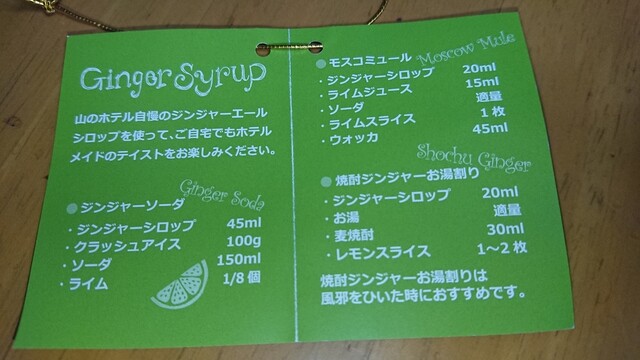 Ginger Syrup
山のホテル自慢のジンジャーエール
シロップを使って、ご自宅でもホテル
メイドのテイストをお楽しみください。
Ginger Soda
●ジンジャーソーダ
・ジンジャーシロップ 45ml
・クラッシュアイス 100g
・ソーダ 150ml
・ライム 1/8個
Moscow Mule
●モスコミュール
・ジンジャーシロップ 20ml
・ライムジュース 15ml
・ソーダ 適量
・ライムスライス 1枚
・ウォッカ 45ml
Shochu Ginger
●焼酎ジンジャーお湯割り
・ジンジャーシロップ 20ml
・お湯 適量
・麦焼酎 30ml
・レモンスライス 1〜2枚
焼酎ジンジャーお湯割りは
風邪をひいた時におすすめです。